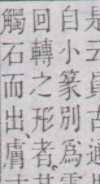 是云員古通
自小篆別為雲
回轉之形者其
觸石而出膚